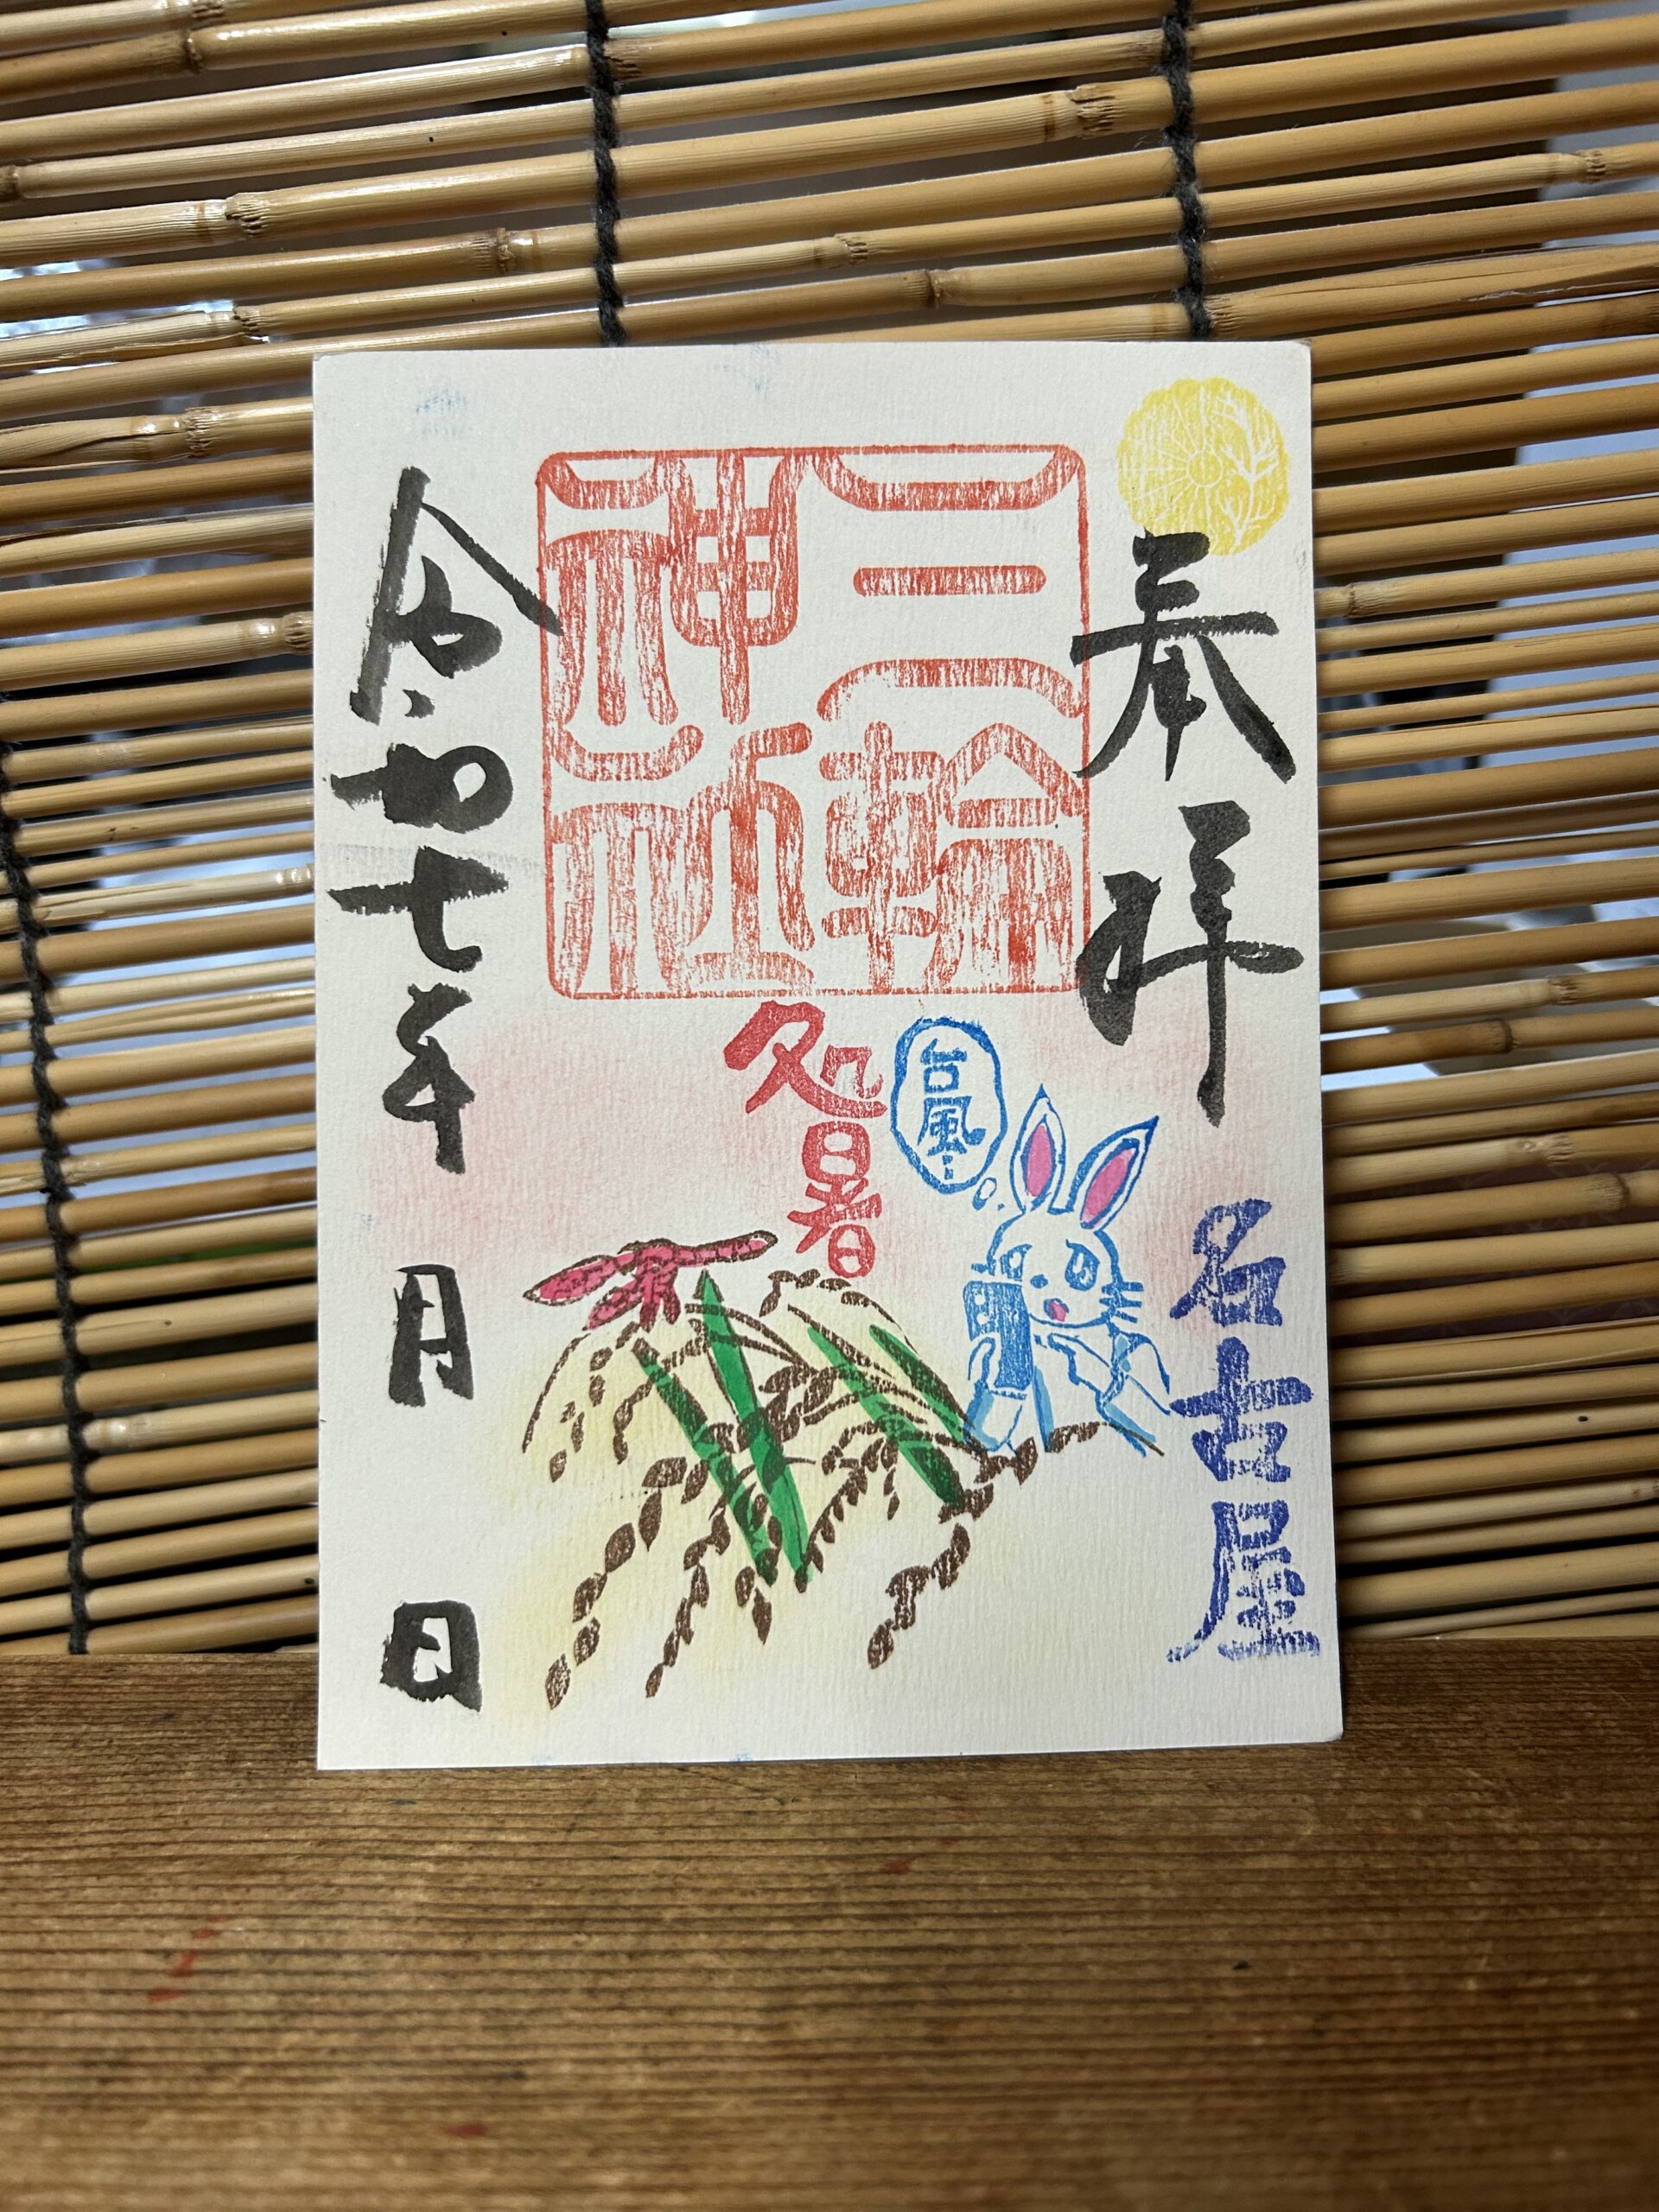 奉拝
名古屋
三輪
神社
台風…
処暑
令和七年 月 日